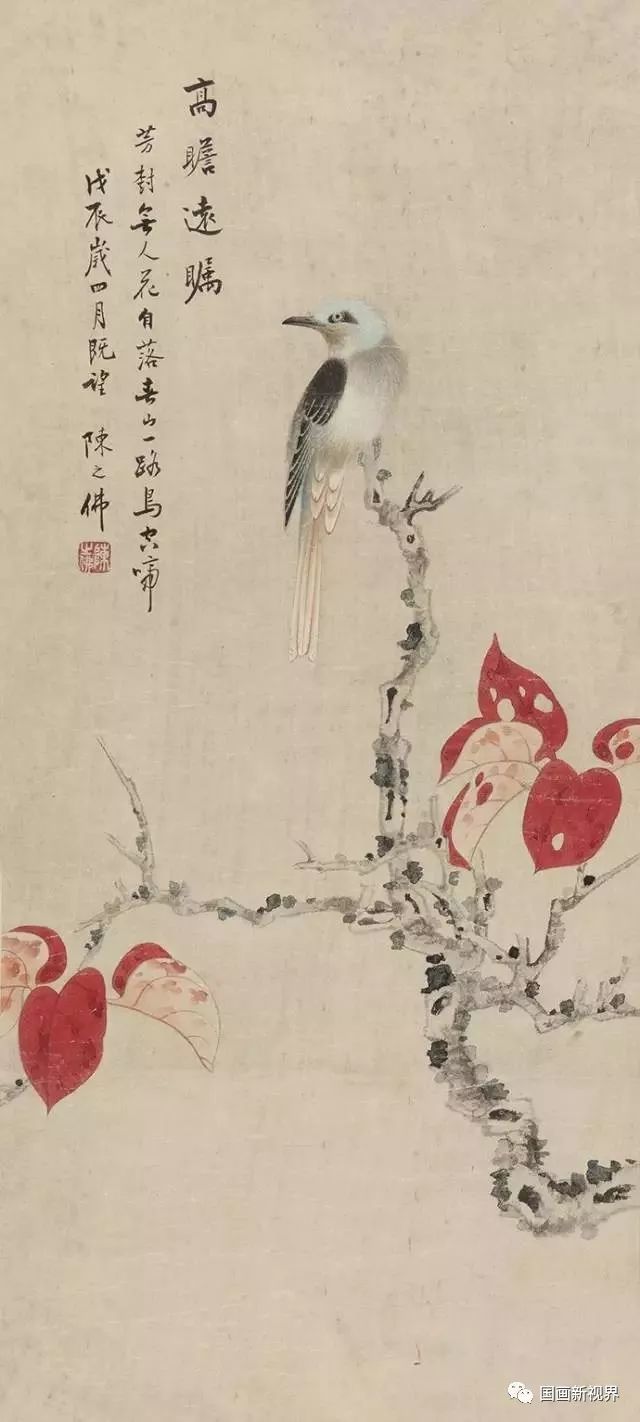 高瞻遠矚
芳封無人花自落春山一路鳥空啼
戊辰歲四月既望 陳之佛
陳之佛
国画新视界